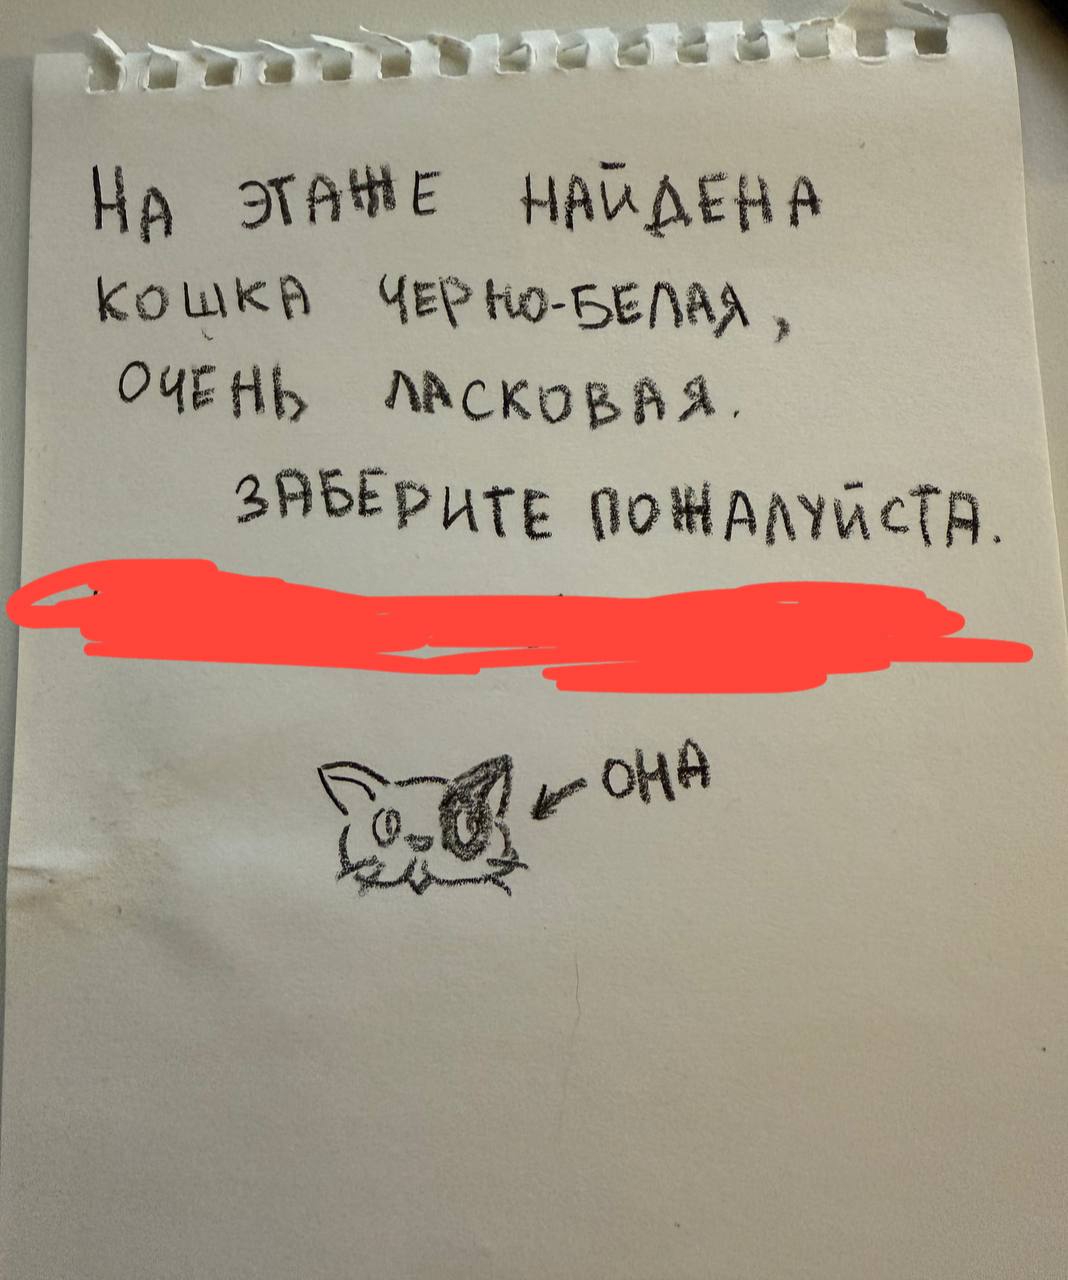 НА ЭТАЖЕ НАЙДЕНА
КОШКА ЧЕРНО-БЕЛАЯ,
ОЧЕНЬ ЛАСКОВАЯ.
ЗАБЕРИТЕ ПОЖАЛУЙСТА.
ОНА